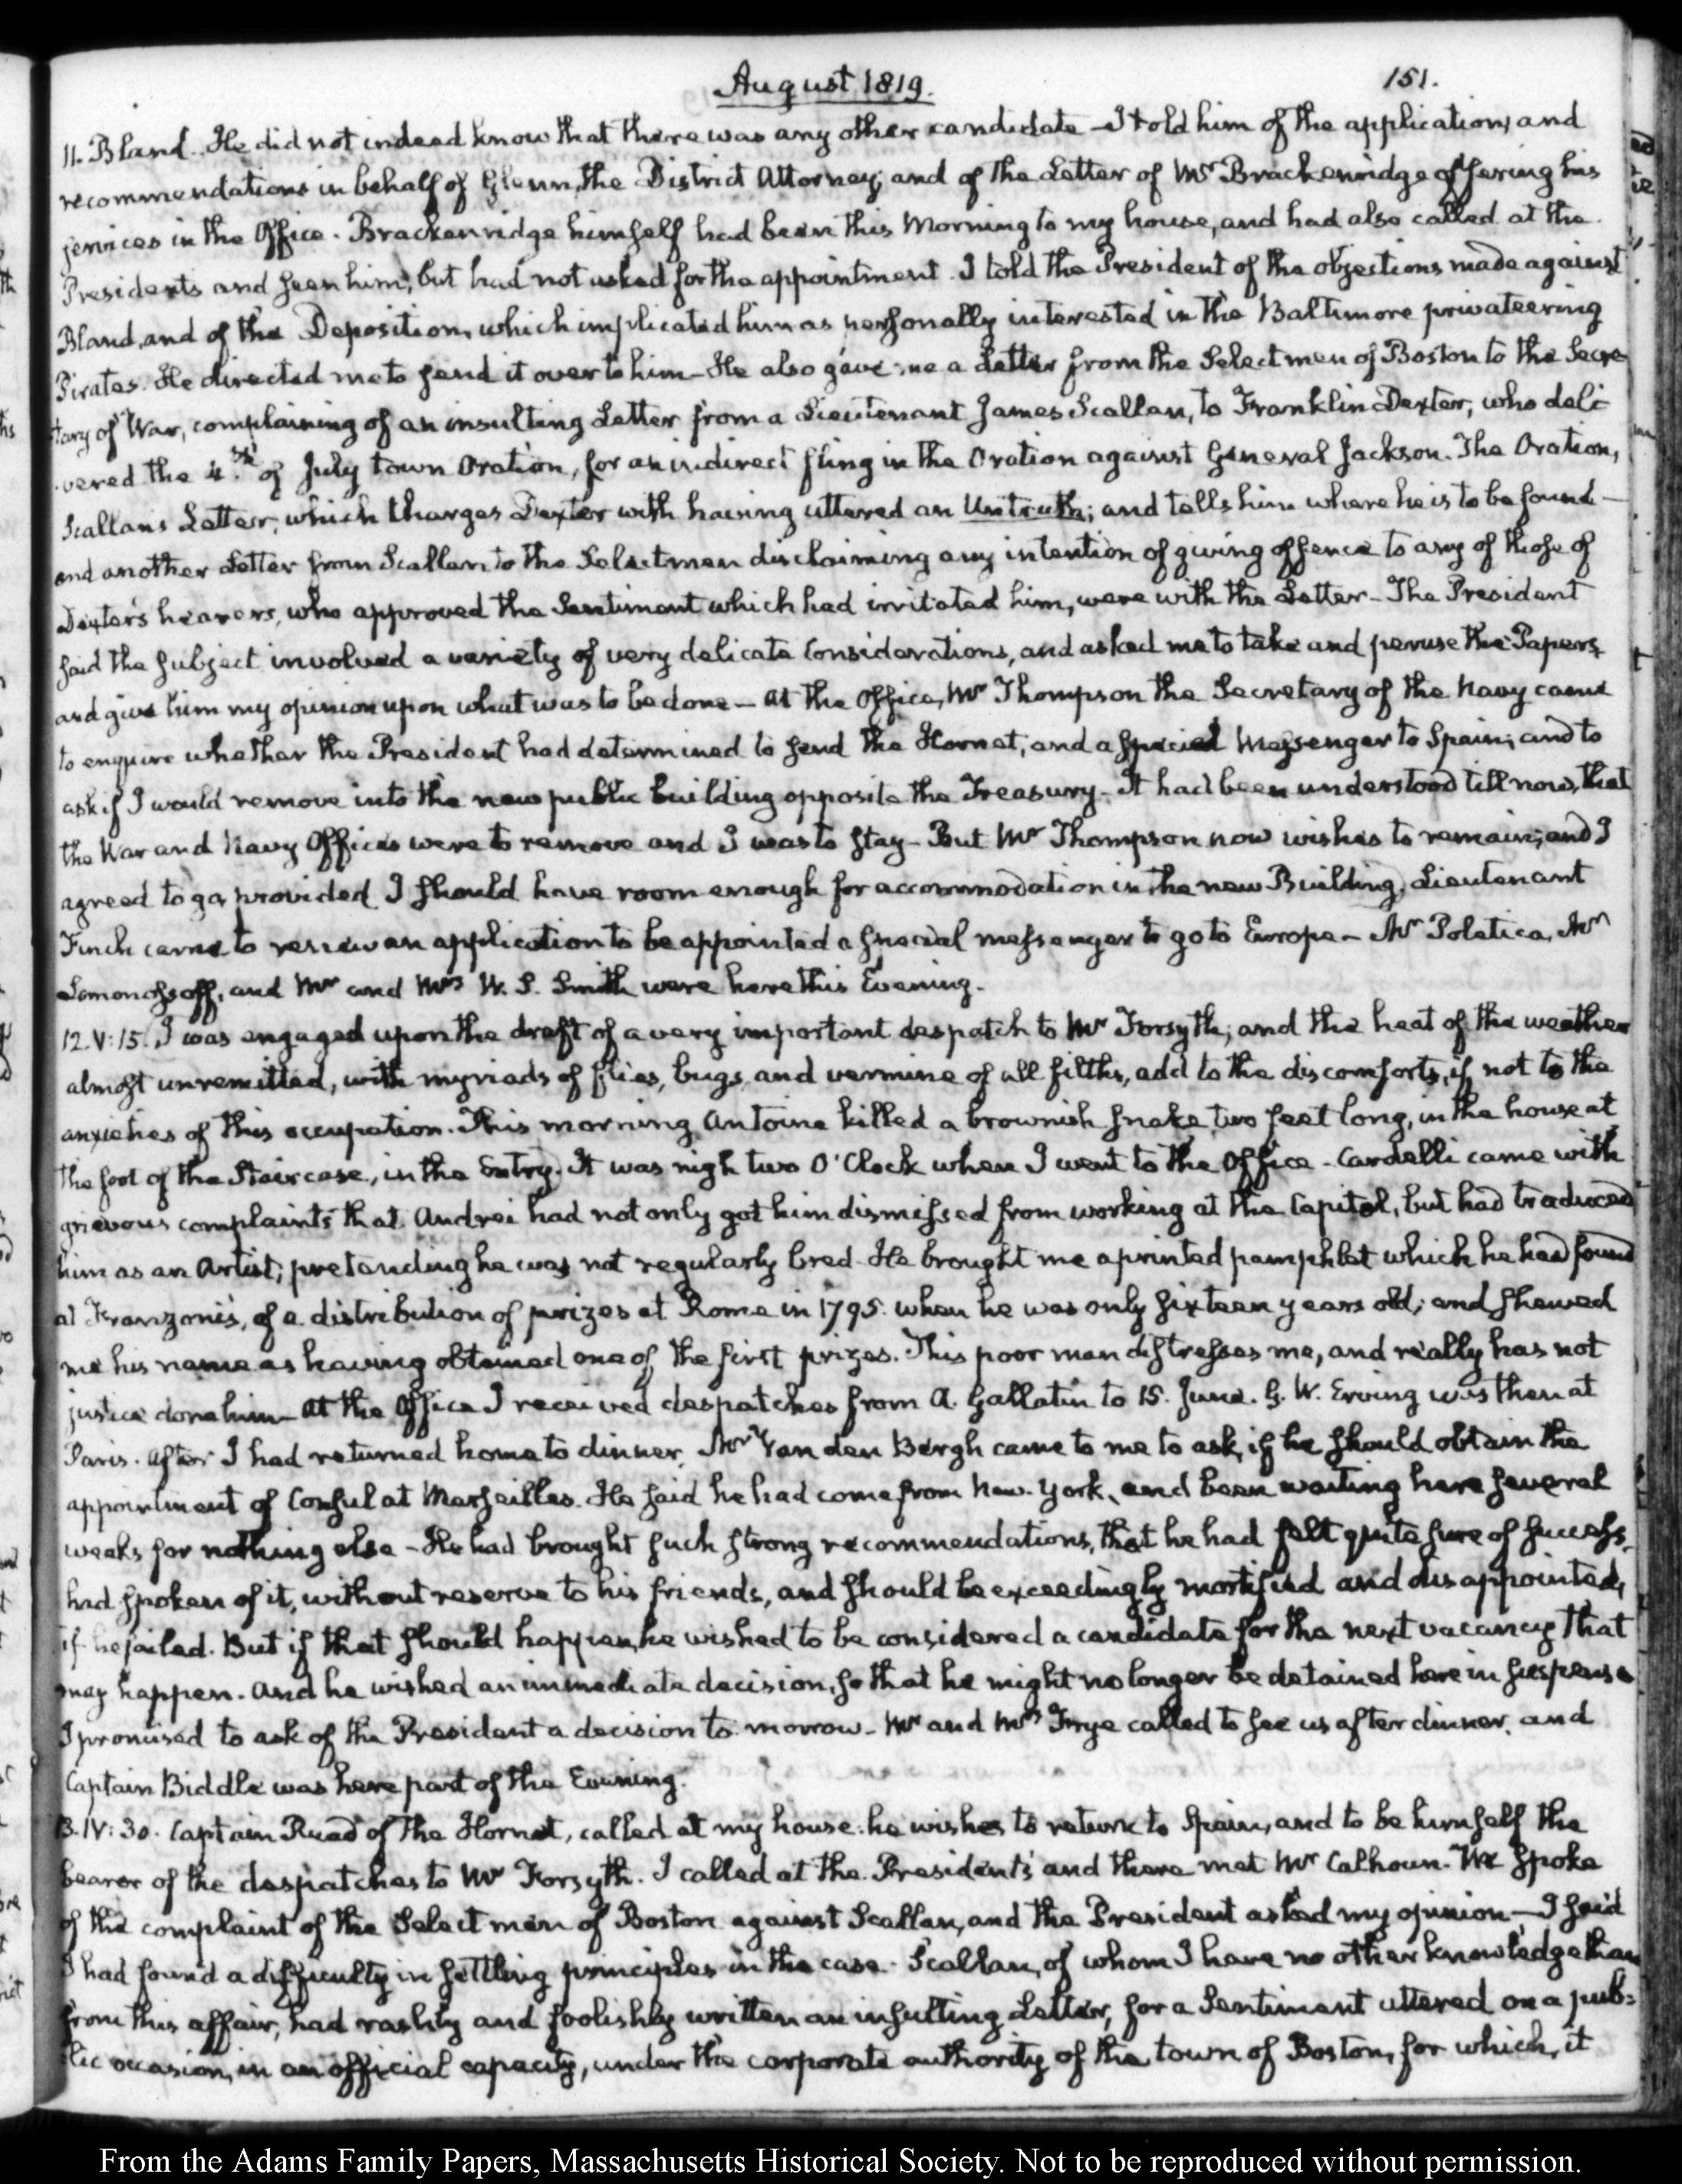 August 1819.
151.
11. Bland. He did not indeed know that there was any other candidate — I told him of the application, and
recommendations in behalf of Glenn, the District Attorney, and of the Letter of Mr Brackenridge offering his
services in the Office. Brackenridge himself had been this Morning to my house, and had also called at the
Presidents and seen him, but had not asked for the appointment. I told the President of the objections made against
Bland, and of the Deposition, which implicated him as personally interested in the Baltimore privateering
Pirates. He directed me to send it over to him — He also gave me a Letter from the Selectmen of Boston to the Secre
tary of War, complaining of an insulting Letter from a Lieutenant James Scallan, to Franklin Dexter, who deli
vered the 4th of July town Oration, for an indirect fling in the Oration against General Jackson. The Oration,
Scallan's Letter, which charges Dexter with having uttered an Untruth; and tells him where he is to be found —
and another Letter from Scallan to the Selectmen disclaiming any intention of giving offence to any of those of
Dexter's hearers, who approved the Sentiment which had irritated him, were with the Letter — The President
said the subject involved a variety of very delicate Considerations, and asked me to take and peruse the Papers,
and give him my opinion upon what was to be done — At the Office, Mr Thompson the Secretary of the Navy came
to enquire whether the President had determined to send the Hornet, and a special Messenger to Spain; and to
ask if I would remove into the new public building opposite the Treasury — It had been understood till now, that
the War and Navy Offices were to remove and I was to stay — But Mr Thompson now wishes to remain; and I
agreed to go, provided I should have room enough for accommodation in the new Building. Lieutenant
Finch came to renew an application to be appointed a special messenger to go to Europe — Mr Poletica, Mr
Lomonossoff, and Mr and Mrs W. S. Smith were here this Evening.
12. V:15. I was engaged upon the draft of a very important despatch to Mr Forsyth; and the heat of the weather
almost unremitted, with myriads of flies, bugs, and vermine of all filths, add to the discomforts, if not to the
anxieties of this occupation. This morning Antoine killed a brownish snake two feet long, in the house at
the foot of the Staircase, in the Entry. It was nigh two O'Clock when I went to the Office — Cardelli came with
grievous complaints that Andrei had not only got him dismissed from working at the Capitol, but had traduced
him as an Artist; pretending he was not regularly bred. He brought me a printed pamphlet which he had found
at Franzoni's, of a distribution of prizes at Rome in 1795. when he was only sixteen years old; and shewed
me his name as having obtained one of the first prizes. This poor man distresses me, and really has not
justice done him — At the Office I received despatches from A. Gallatin to 15. June. G. W. Erving was then at
Paris. After I had returned home to dinner, Mr Van den Bergh came to me to ask, if he should obtain the
appointment of Consul at Marseilles. He said he had come from New-York, and been waiting here several
weeks for nothing else — He had brought such strong recommendations, that he had felt quite sure of success,
had spoken of it, without reserve to his friends, and should be exceedingly mortified and disappointed,
if he failed. But if that should happen, he wished to be considered a candidate for the next vacancy that
may happen. And he wished an immediate decision, so that he might no longer be detained here in suspense
I promised to ask of the President a decision to-morrow — Mr and Mrs Frye called to see us after dinner, and
Captain Biddle was here part of the Evening.
13. IV:30. Captain Read of the Hornet, called at my house. he wishes to return to Spain, and to be himself the
bearer of the despatches to Mr Forsyth. I called at the President's and there met Mr Calhoun. We spoke
of the complaint of the Select men of Boston against Scallan, and the President asked my opinion — I said
I had found a difficulty in settling principles in the case. Scallan, of whom I have no other knowledge than
from this affair, had rashly and foolishly written an insulting Letter, for a Sentiment uttered on a pub=
lic occasion, in an official capacity, under the corporate authority of the town of Boston, for which, it
From the Adams Family Papers, Massachusetts Historical Society. Not to be reproduced without permission.